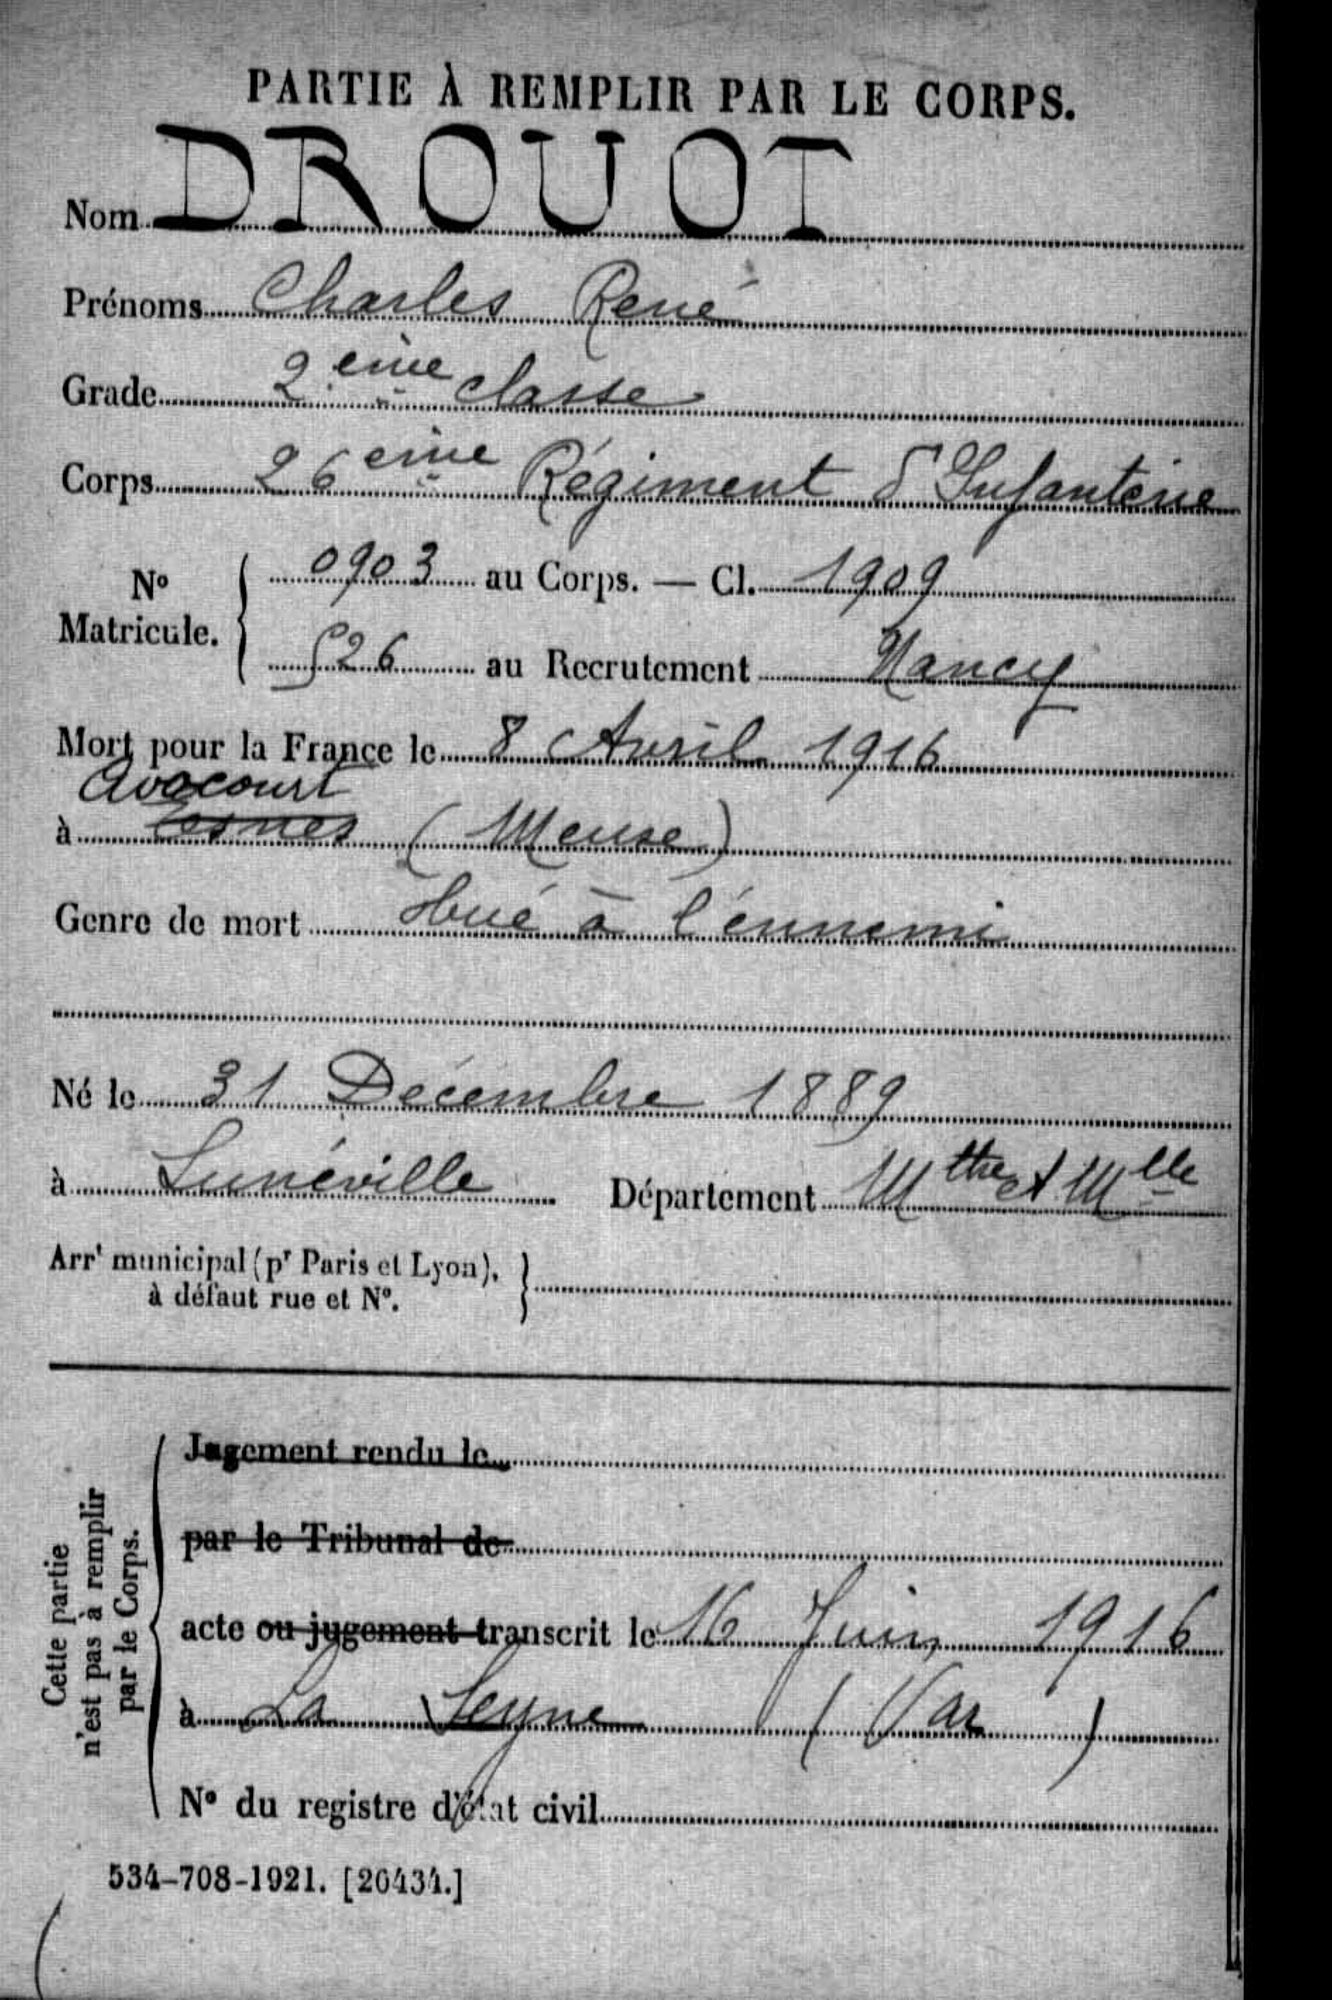 PARTIE À REMPLIR PAR LE CORPS.
Nom DROUOT
Prénoms Charles René
Grade 2eme classe
Corps 26eme Régiment d'Infanterie
No Matricule. { 0903 au Corps. — Cl. 1909
526 au Recrutement Nancy
Mort pour la France le 8 Avril 1916
Avocourt
à Esnes (Meuse)
Genre de mort tué à l'énnemi
Né le 31 Décembre 1889
à Lunéville Département Mthe et Mlle
Arrt municipal (pr Paris et Lyon),
à défaut rue et No. }
Cette partie n'est pas à remplir par le Corps.
Jugement rendu le
par le Tribunal de
acte ou jugement transcrit le 16 Juin 1916
à La Seyne (Var)
No du registre d'état civil
534-708-1921. [26434.]